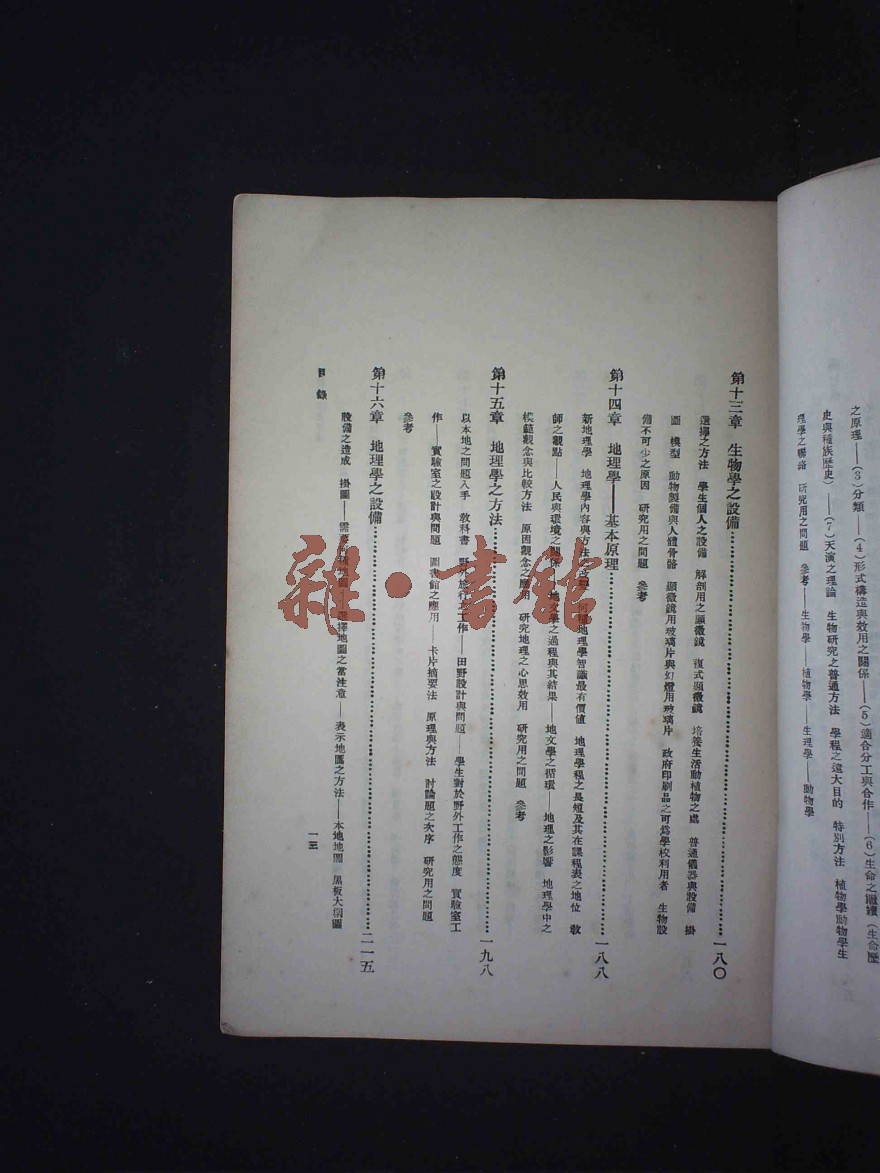 之原理——(3)分類——(4)形式構造與效用之關係——(5)適合分工與合作——(6)生命之繼續(生命歷
史與種族歷史)——(7)天演之理論 生物研究之普通方法 學程之遠大目的 特別方法 植物學動物學生
理學之聯絡 研究用之問題 參考——生物學——植物學——生理學——動物學
第十三章 生物學之設備……一八〇
選擇之方法 學生個人之設備 解剖用之顯微鏡 複式顯微鏡 培養生活動植物之處 普通儀器與設備 掛
圖 模型 動物製備與人體骨骼 顯微鏡用玻璃片與幻燈用玻璃片 政府印刷品之可爲學校利用者 生物設
備不可少之原因 研究用之問題 參考
第十四章 地理學——基本原理……一八八
新地理學 地理學內容與方法之 何種地理學智識最有價値 地理學程之長短及其在課程表之地位 教
師之觀點——人民與環境之關係——地文學之過程與其結果——地文學之循環——地理之影響 地理學中之
模範觀念與比較方法 原因觀念之應用 研究地理之心思效用 研究用之問題 參考
第十五章 地理學之方法……一九八
以本地之問題入手 教科書 野外旅行之工作——田野設計與問題——學生對於野外工作之態度 實驗室工
作——實驗室之設計與問題 圖書館之應用——卡片摘要法 原理與方法 討論題之次序 研究用之問題
參考
第十六章 地理學之設備……二一五
設備之造成 掛圖——需要何種地圖——選擇地圖之當注意——表示地圖之方法——本地地圖 黑板大綱圖
目錄
一三
雜·書館